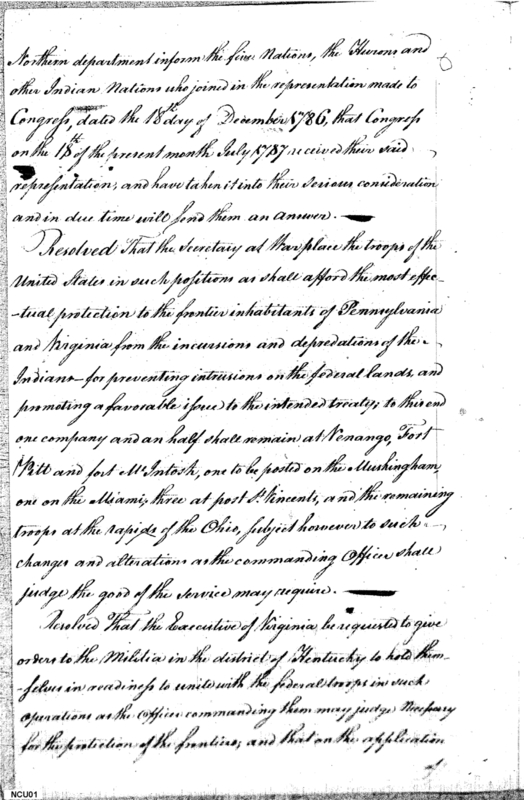 Northern department inform the five Nations, the Hurons and
other Indian Nations who joined in the representation made to
Congress, dated the 18th day of December 1786, that Congress
on the 18th of the present month July 1787 received their said
representation, and have taken it into their serious consideration
and in due time will send them an answer.
Resolved That the Secretary at War place the troops of the
United States in such positions as shall afford the most effec-
-tual protection to the frontier inhabitants of Pennsylvania
and Virginia from the incursions and depredations of the
Indians - for preventing intrusions on the federal lands, and
promoting a favorable issue to the intended treaty; to this end
one company and an half shall remain at Venango, Fort
Pitt and fort McIntosh, one to be posted on the Mushingham,
one on the Miami, three at post St Vincents, and the remaining
troops at the rapids of the Ohio, subject however to such
changes and alterations as the commanding Officer shall
judge the good of the service may require.
Resolved That the Executive of Virginia be requested to give
orders to the Militia in the district of Kentucky to hold them-
-selves in readiness to unite with the federal troops in such
operations as the officer commanding them may judge necessary
for the protection of the frontiers; and that on the application
NCU01